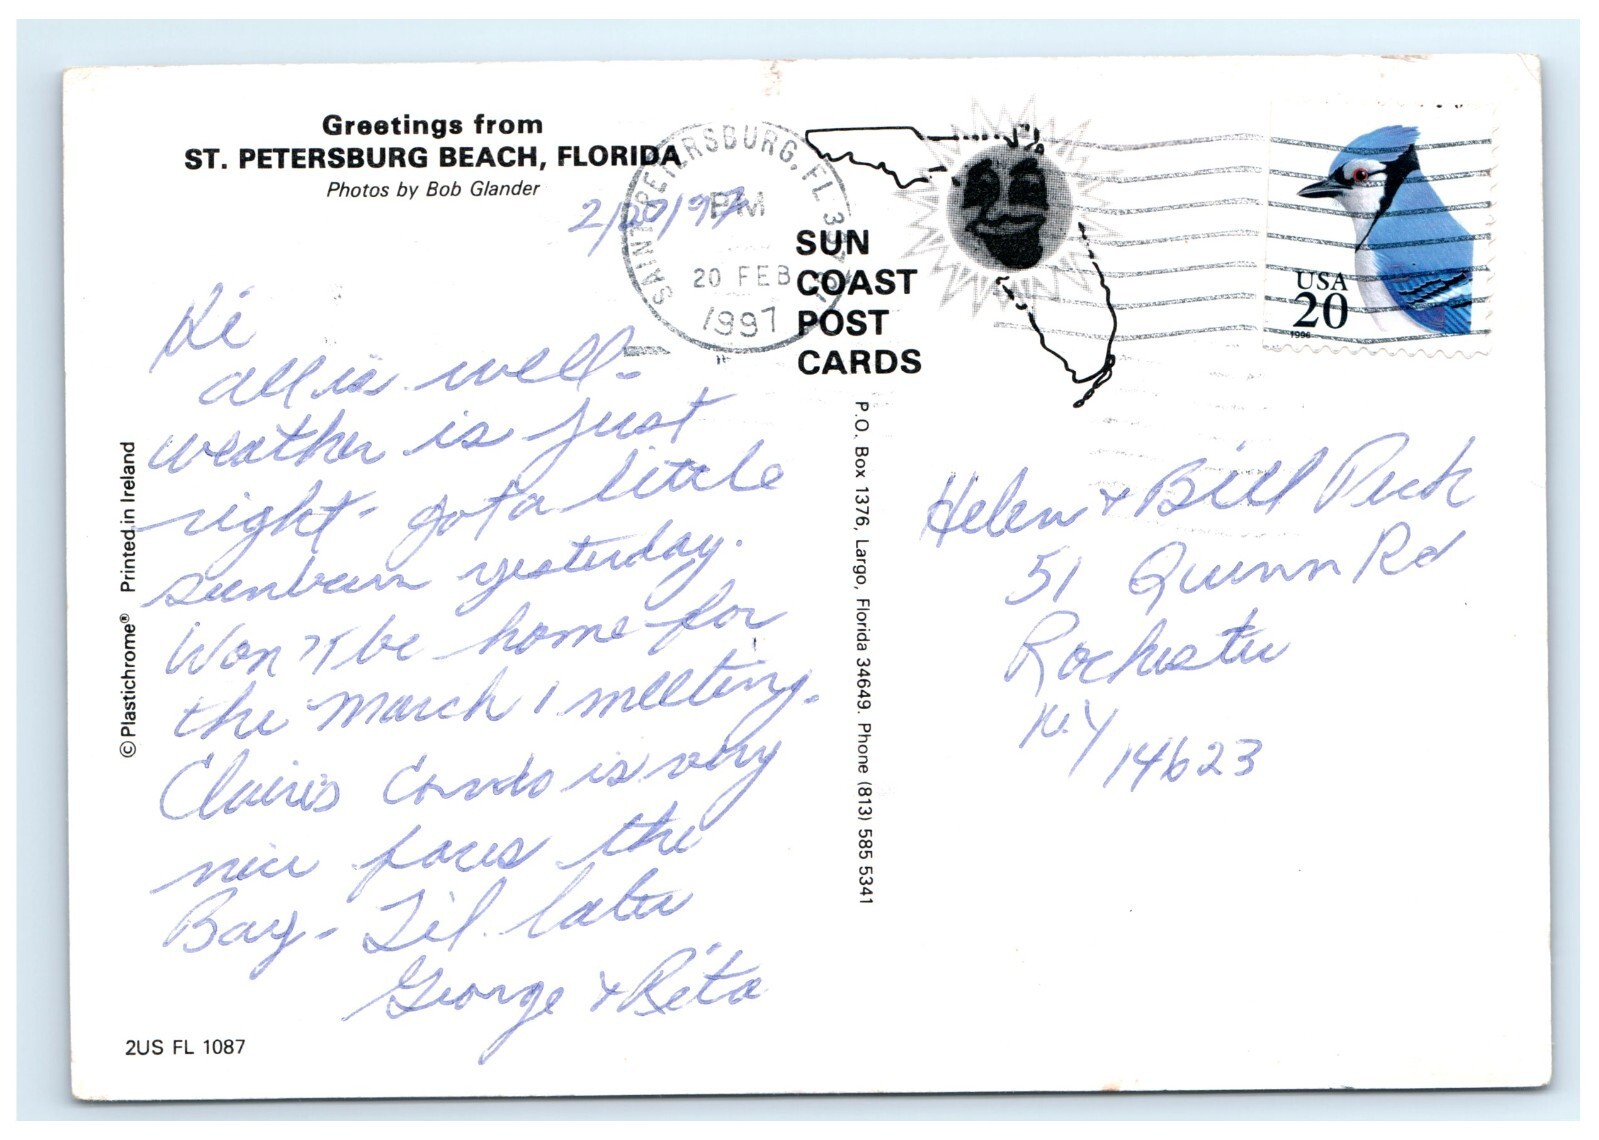 Greetings from
ST. PETERSBURG BEACH, FLORIDA
Photos by Bob Glander
2/20/97
Hi
all is well-
weather is just
right - got a little
sunburn yesterday.
Won't be home for
the March 1 meeting.
Claire's Condo is very
nice faces the
Bay - Til later
George & Rita
2US FL 1087
© Plastichrome® Printed in Ireland
SAINT PETERSBURG, FL
PM
20 FEB
1997
SUN
COAST
POST
CARDS
P.O. Box 1376, Largo, Florida 34649. Phone (813) 585 5341
USA
20
1996
Helen & Bill Peck
51 Quinn Rd
Rochester
N.Y
14623